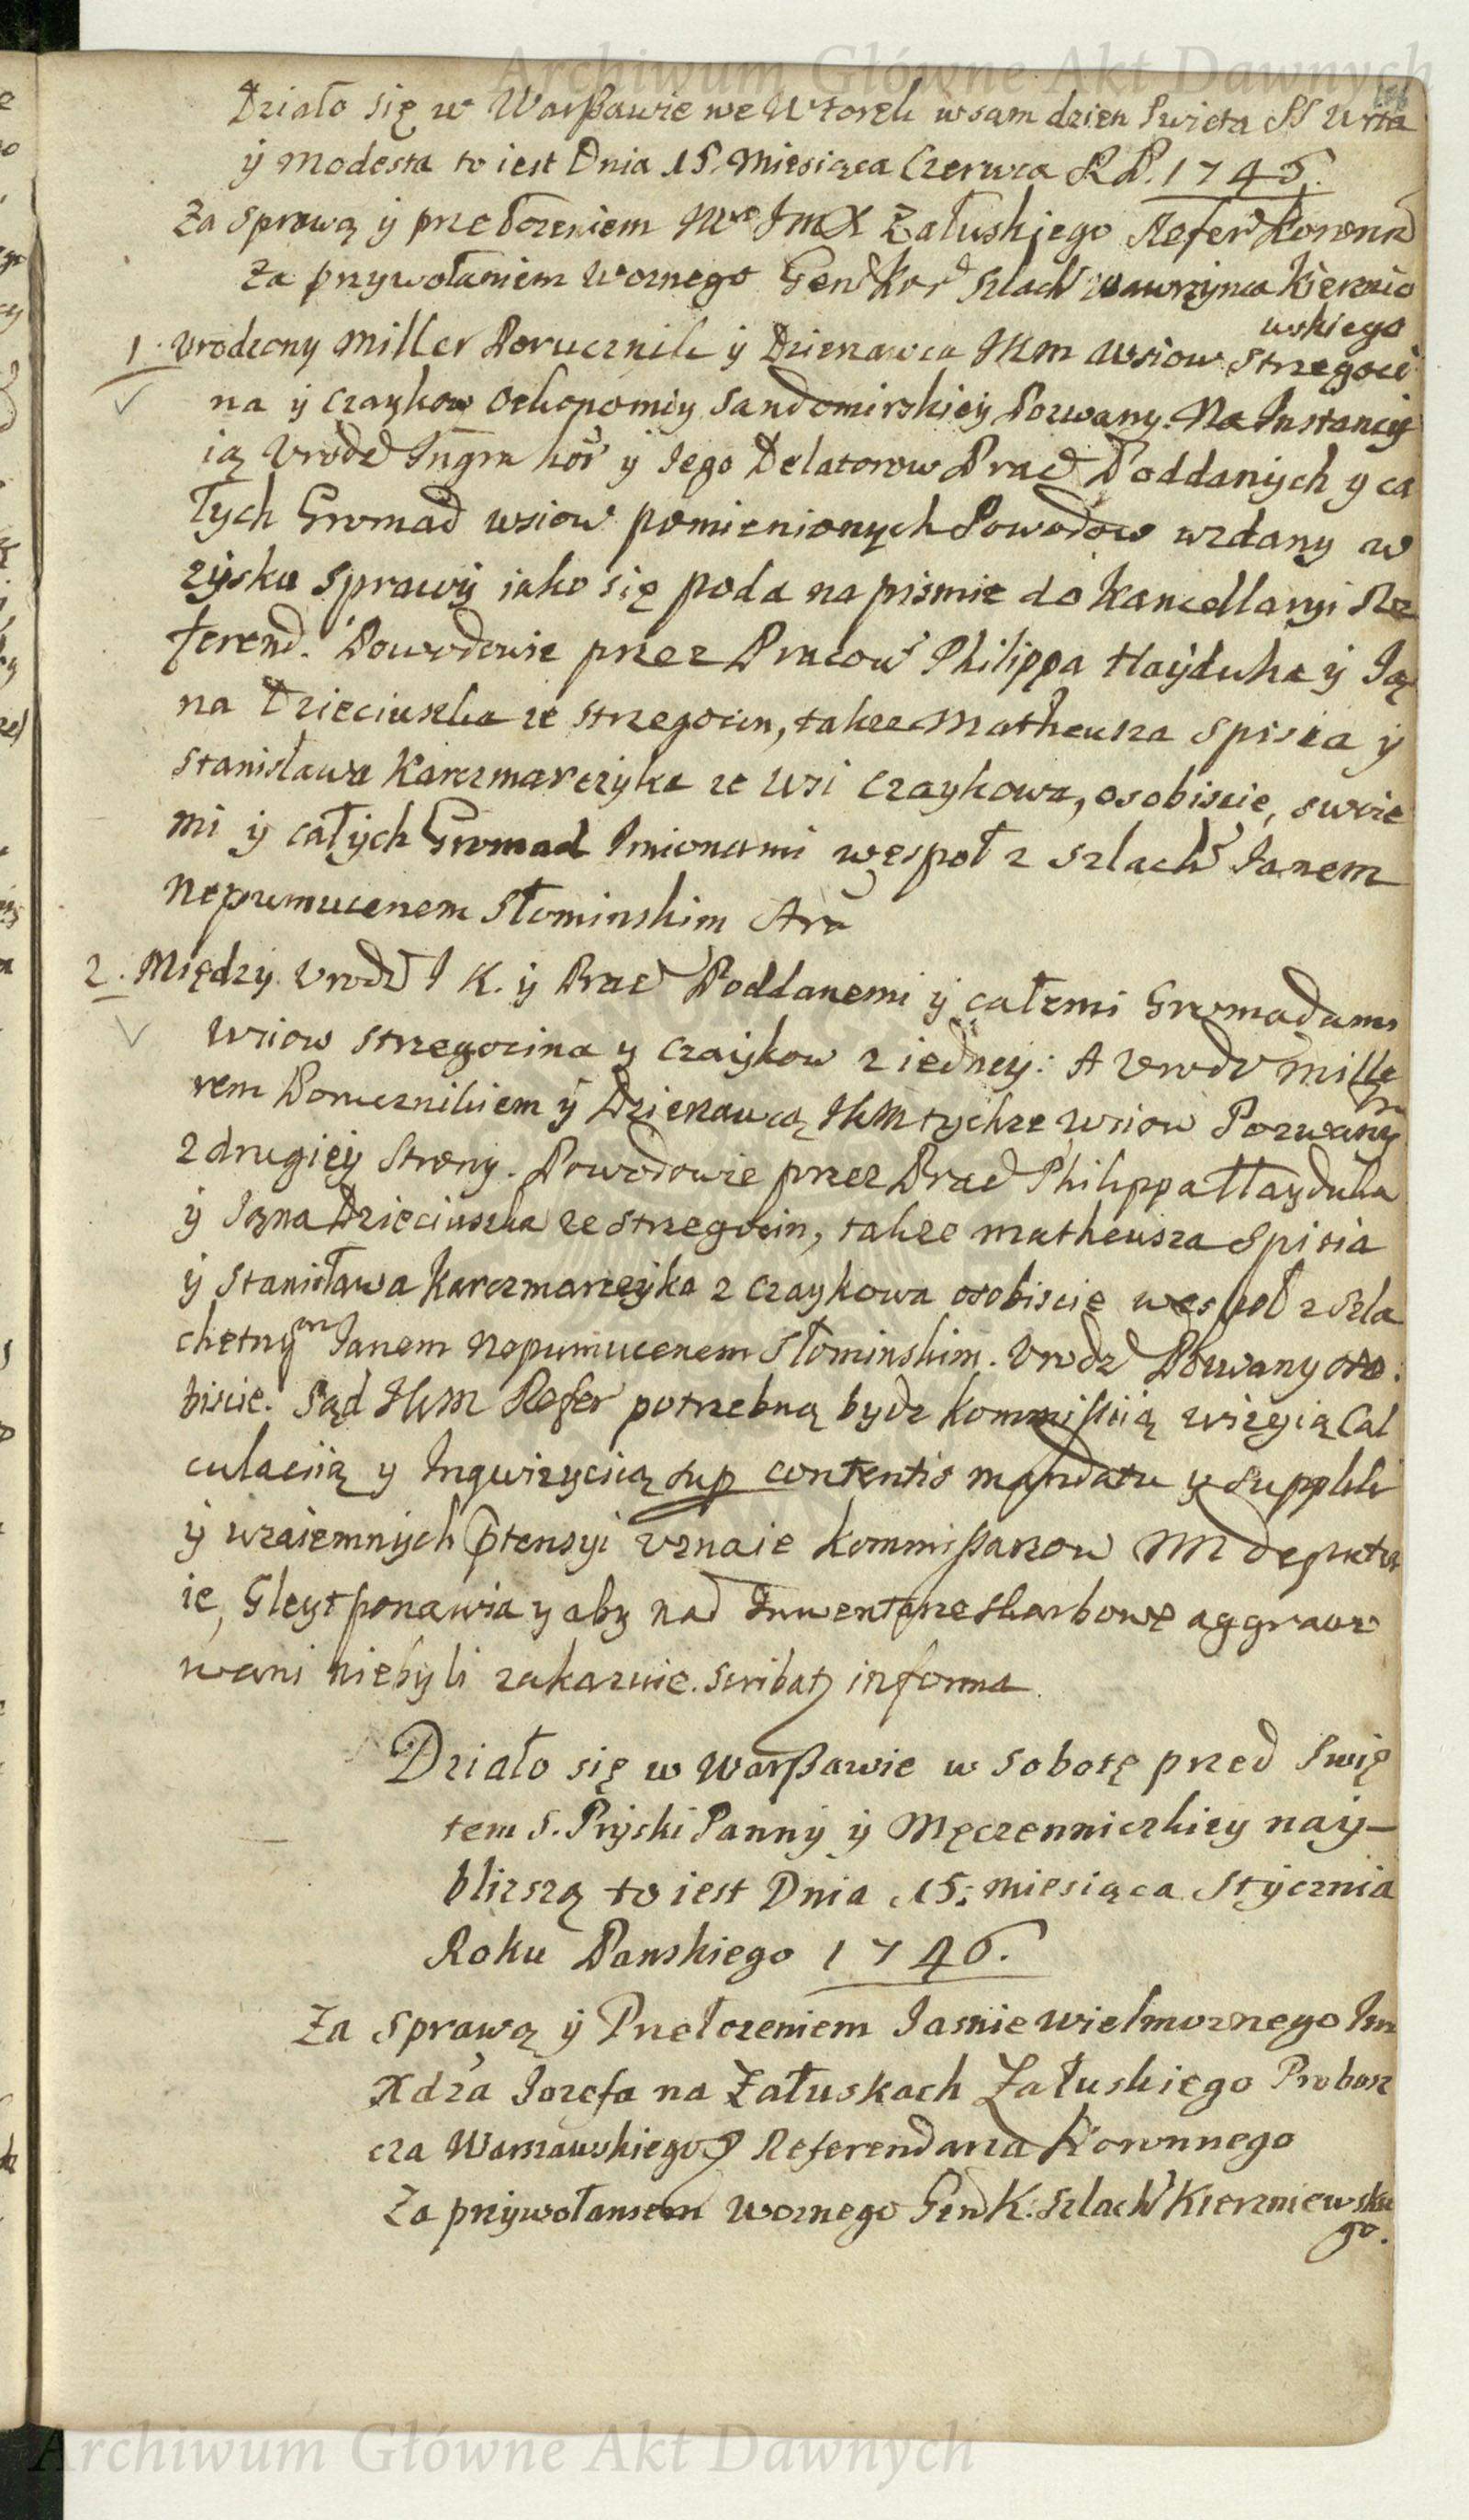 Archiwum Główne Akt Dawnych
Działo się w Warßawie we Wtorek w sam dzien Swieta SS Wita
ÿ Modesta to iest Dnia 15. Miesiąca Czerwca R P. 1745.
Za sprawą ÿ przełozeniem JmX Załuskiego Refer Koronn
Za przywołaniem Woznego Gen Kor Szlach Wawrzynca Kiernie
wskiego
1. Vrodzony Miller Porucznik ÿ Dzierzawca JKM Wsiow Strzegoci
na ÿ Czaykow Oekonomiy Sandomirskiey Pozwany. Na Instancÿ
ią Vrodz ÿ Jego Delatorow Prac Poddanÿch y ca
łÿch Gromad wsiow pomienionÿch Powodow wzdany w
zÿsku sprawÿ iako się poda na pismie do Kancellaryi Re
ferend. Powodowie przez Pracow Philippa Hayduka ÿ Ja
na Dzieciuszka ze Strzegocin, takze Matheusza Spisia ÿ
Stanisława Karczmarczÿka ze Wsi Czaykowa, osobiscie, swoie
mi ÿ całÿch Gromad Imionami wespoł z Szlach Janem
Nepumucenem Słominskim
2. Międzÿ Vrodz J K. ÿ Prac Poddanemi ÿ całemi Gromadami
Wsiow Strzegocina y Czaÿkow z iedneÿ: A Vrodz Mille
rem Porucznikiem ÿ Dzierzawcą JKM tÿchze Wsiow Pozwanÿ
m
z drugieÿ Strony. Powodowie przez Prac Philippa Hayduka
ÿ Jana Dzieciuszka ze Strzegocin, takze Matheusza Spisia
ÿ Stanisława Karczmarczÿka z Czaykowa osobiscie wespoł z Szla
chetnym Janem Nepumucenem Słominskim. Vrodz Pozwany oso:
biscie. Sąd JKM Refer potrzebną bydz Kommissiią wizyią Cal
culaciią y Inqwizycią sup contentis mandatu y Supplik
ÿ wzaiemnÿch ptensyi vznaie Kommißarzow NN deputu
ie, Gleyt ponawia y aby nad Inwentarze skarbowe aggrawo
wani niebyli zakazuie. Scribat in forma
Działo się w Warßawie w Sobotę przed Swię
tem S. Prÿski Pannÿ ÿ Męczenniczkiey naÿ-
blizszą to iest Dnia 15. Miesiąca Stÿcznia
Roku Panskiego 1746.
Za sprawą ÿ Przełozeniem Jasnie Wielmoznego Jm
Xdza Jozefa na Załuskach Załuskiego Probosz
cza Warszawskiego Referendarza Koronnego
Za przÿwołaniem Woznego Gen K: Szlach Kierzniewskie
go.
Archiwum Główne Akt Dawnych